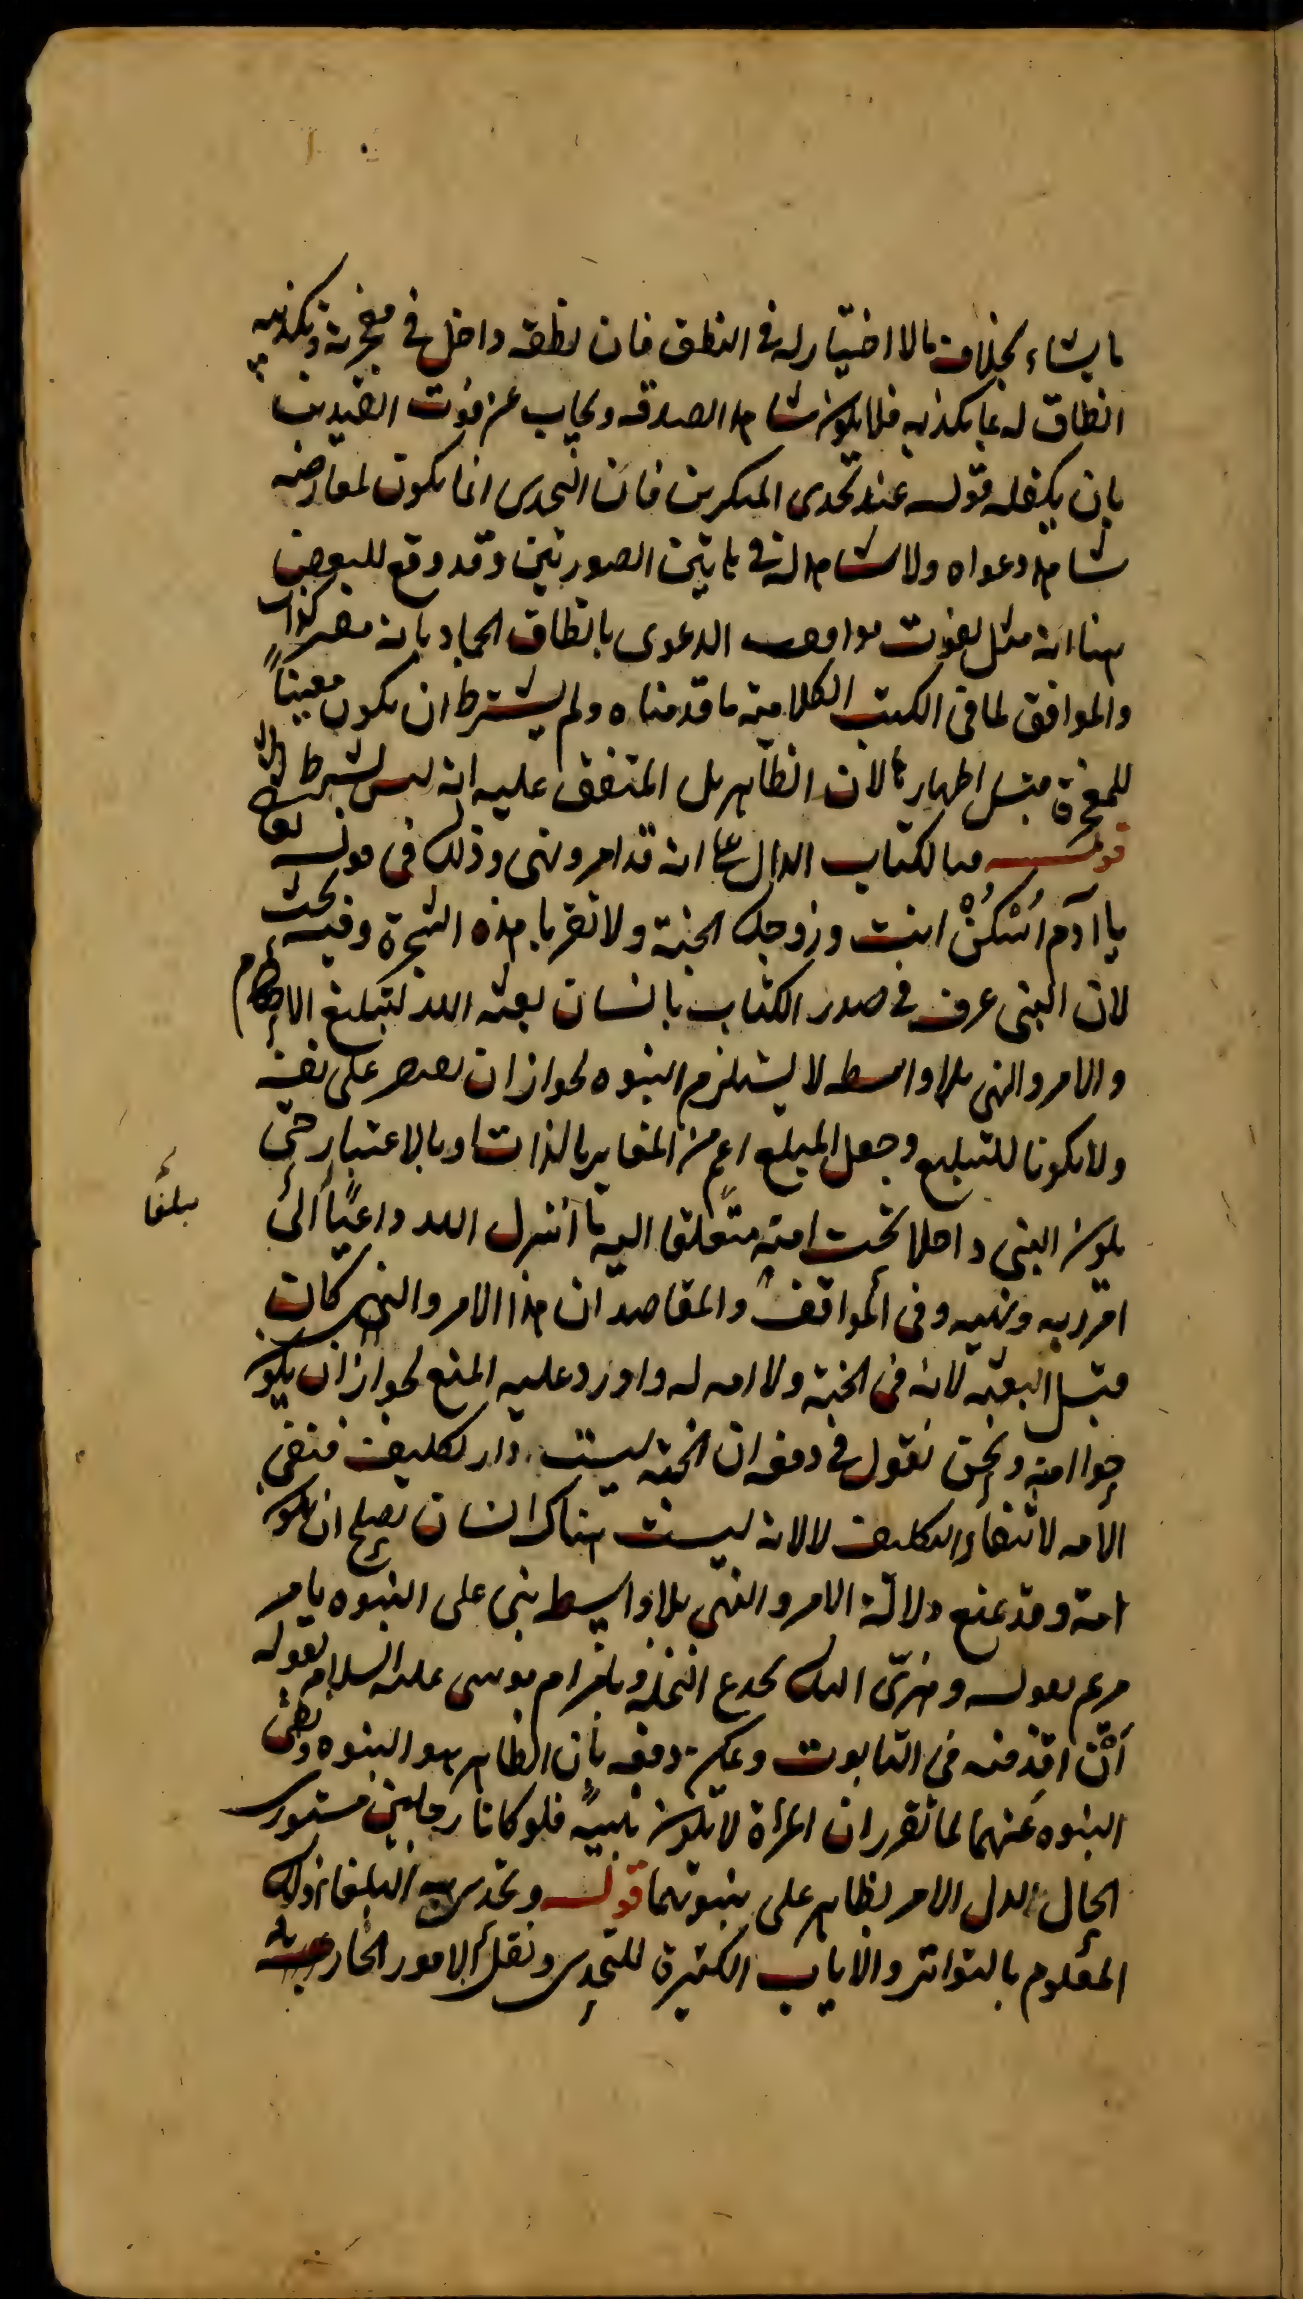 ما يشاء بخلاف ما لا اختيار له في النطق فان نطقه داخل في معجزته وتكذيبه
انطاق له بما يكذبه فلا يكون شاهد الصدقه ويجاب عن فوت القيدين
بان يكفله قوله عند تحدي المنكرين فان التحدي انما يكون لمعارضه
شاهد دعواه ولا شاهد له في هاتين الصورتين وقد وقع للبعض
هنا انه مثل لفوت موافقه الدعوى بانطاق الجماد بانه مفتر كذاب
والموافق لما في الكتب الكلامية ما قدمناه ولم يشترط ان يكون معيناً
للمعجزة قبل اظهارها لان الظاهر بل المتفق عليه انه ليس بشرط
قوله فبالكتاب الدال على انه قد امر ونهى وذلك في قوله تعالى
يا آدم اُسْكُنْ انت وزوجك الجنة ولا تقربا هذه الشجرة وفيه بحث
لان النبي عرف في صدر الكتاب بانسان بعثه الله لتبليغ الاحكام
والامر والنهي بلا واسطه لا يستلزم النبوه لجواز ان يقتصر على نفسه
ولا يكونا للتبليغ وجعل المبلغ اعم من المغاير بالذات او بالاعتبار حتى
يكون النبي داخلا تحت امته متعلقا اليه ما انزل الله داعياً الى
مبلغا
امر ربه ونهيه وفي المواقف والمقاصد ان هذا الامر والنهي كان
قبل البعثه لانه في الجنة ولا امه له واورد عليه المنع لجواز ان يكون
حوا امته ونحن نقول في دفعه ان الجنه ليست دار تكليف فنفي
الامه لانتفاء التكليف لا لانه ليست هناك انسان يصلح ان يكون
امة وقد يمنع دلالة الامر والنهي بلا واسطه نبي على النبوه بامر
مريم بقوله وهزي اليك بجذع النخله وبامر ام موسى عليه السلام بقوله
اَنْ اقذفيه في التابوت ويمكن دفعه بان الظاهر هو النبوه ونفي
النبوه عنهما لما تقرر ان المرأة لا يكون نبيةً فلو كانا رجلين مستوري
الحال لدل الامر بظاهر على نبوتهما قوله وتحدى به البلغاء وذلك
المعلوم بالتواتر والايات الكثيرة للتحدي ونقل الامور الخارقة